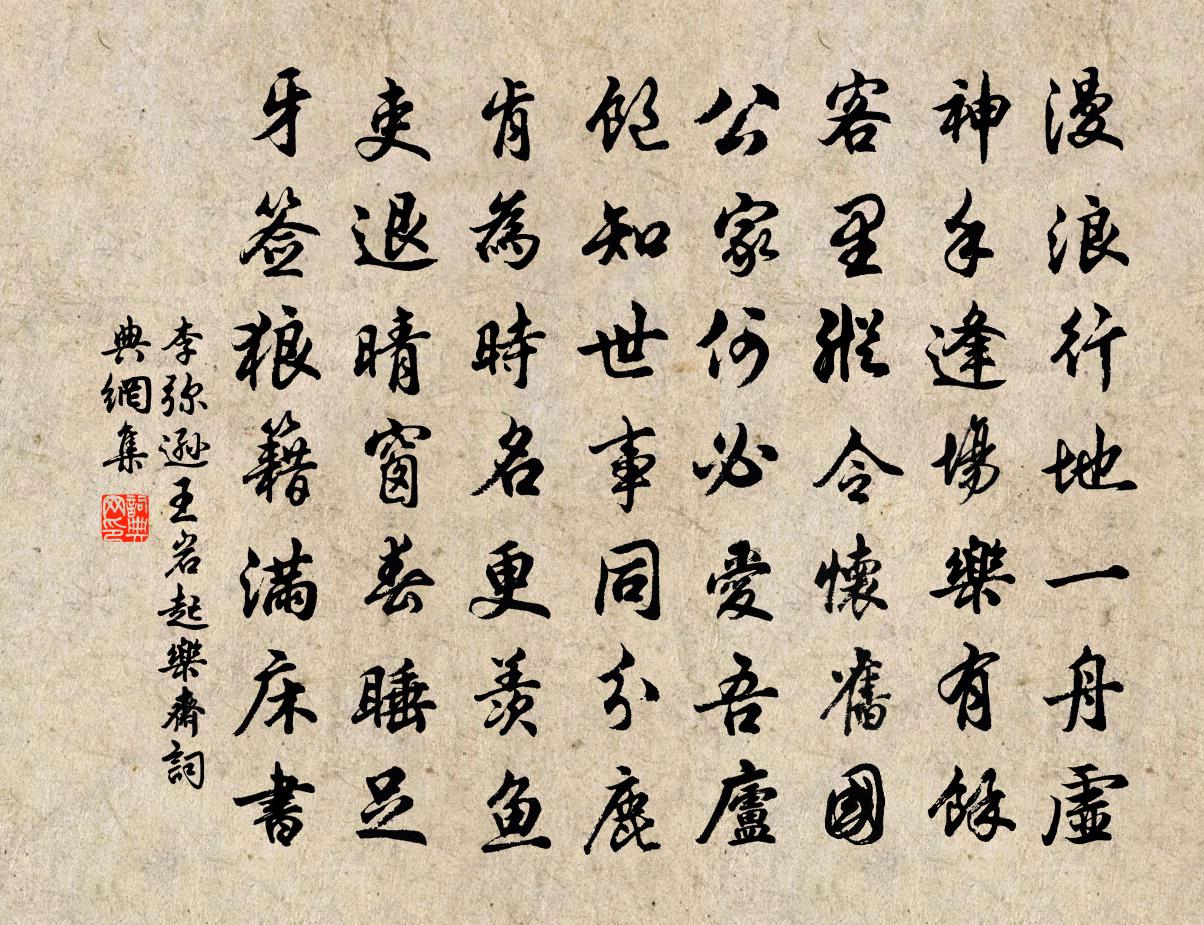 漫浪行地一舟虛
神手逢場樂有餘
客里縱令懷舊國
公家何必愛吾廬
飽知世事同分鹿
肯為時名更羨魚
吏退晴窗春睡足
牙簽狼籍滿床書
李弥遜王岩起樂齋詞
典網集
詞典
網印